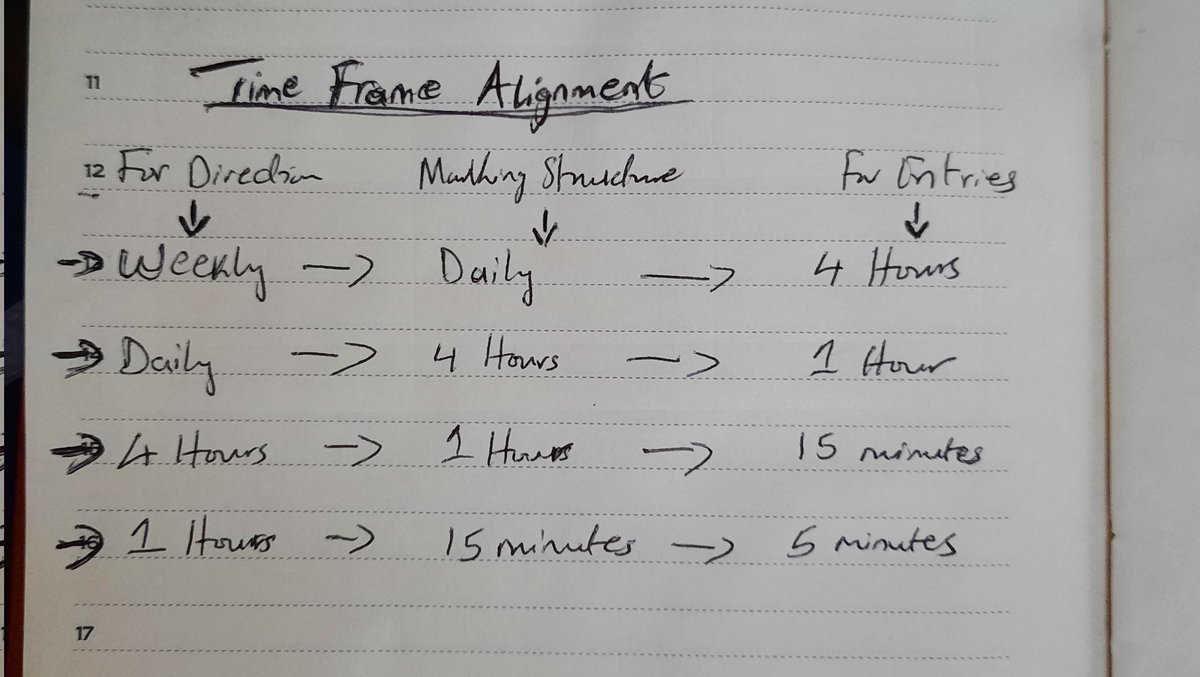 11 Time Frame Alignment
12 For Direction Marking Structure For Entries
↓ ↓ ↓
→ Weekly → Daily → 4 Hours
→ Daily → 4 Hours → 1 Hour
→ 4 Hours → 1 Hours → 15 minutes
→ 1 Hours → 15 minutes → 5 minutes
17